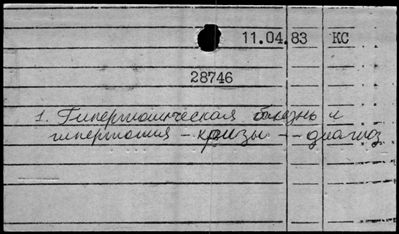 11.04.83 КС
28746
1. Гипертоническая болезнь и
гипертония - кризы -- диагноз